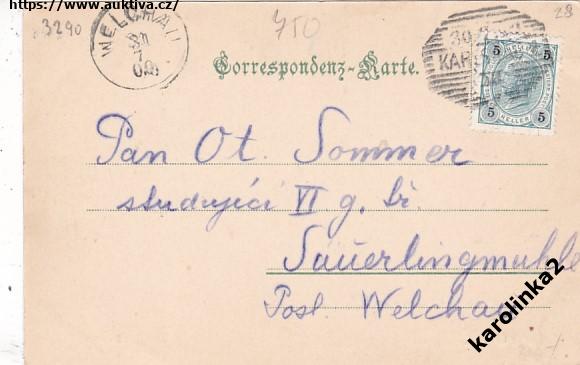 https://www.auktiva.cz/
3290
WELCHAU
750
28
Correspondenz-Karte.
30
KAR
5 5
HELLER
5 5
Pan Ot. Sommer
studující VI g. tř.
Sauerlingmühle
Posl. Welchau
karolinka2